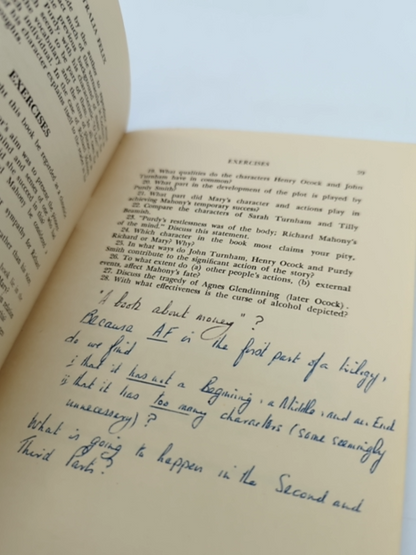 AUSTRALIA FELIX
EXERCISES
EXERCISES
19. What qualities do the characters Henry Ocock and John
Turnham have in common?
20. What part in the development of the plot is played by
Purdy Smith?
21. What part did Mary's character and actions play in
achieving Mahony's temporary success?
22. Compare the characters of Sarah Turnham and Tilly
Beamish.
23. "Purdy's restlessness was of the body; Richard Mahony's
of the mind." Discuss this statement.
24. Which character in the book most claims your pity,
Richard or Mary? Why?
25. In what ways do John Turnham, Henry Ocock and Purdy
Smith contribute to the significant action of the story?
26. To what extent do (a) other people's actions, (b) external
events, affect Mahony's fate?
27. Discuss the tragedy of Agnes Glendinning (later Ocock).
28. With what effectiveness is the curse of alcohol depicted?
"A book about money"?
Because AF is the first part of a trilogy,
do we find
i that it has not a Beginning, a Middle, and an End
ii that it has too many characters (some seemingly
unnecessary)?
What is going to happen in the Second and
Third Parts?